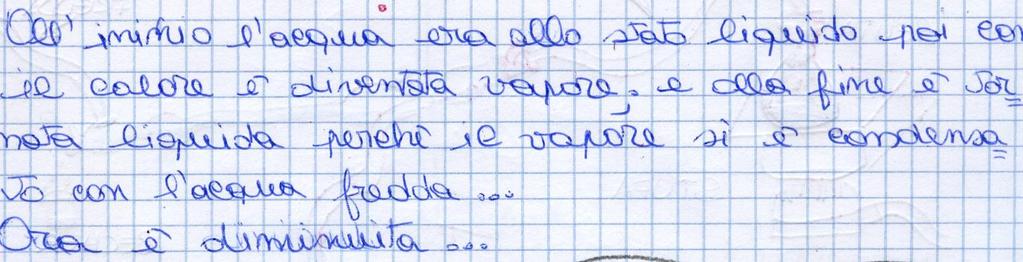 All'inizio l'acqua era allo stato liquido poi con
il calore è diventata vapore, e alla fine è tor=
nata liquida perchè il vapore si è condensa=
to con l'acqua fredda...
Ora è diminuita...